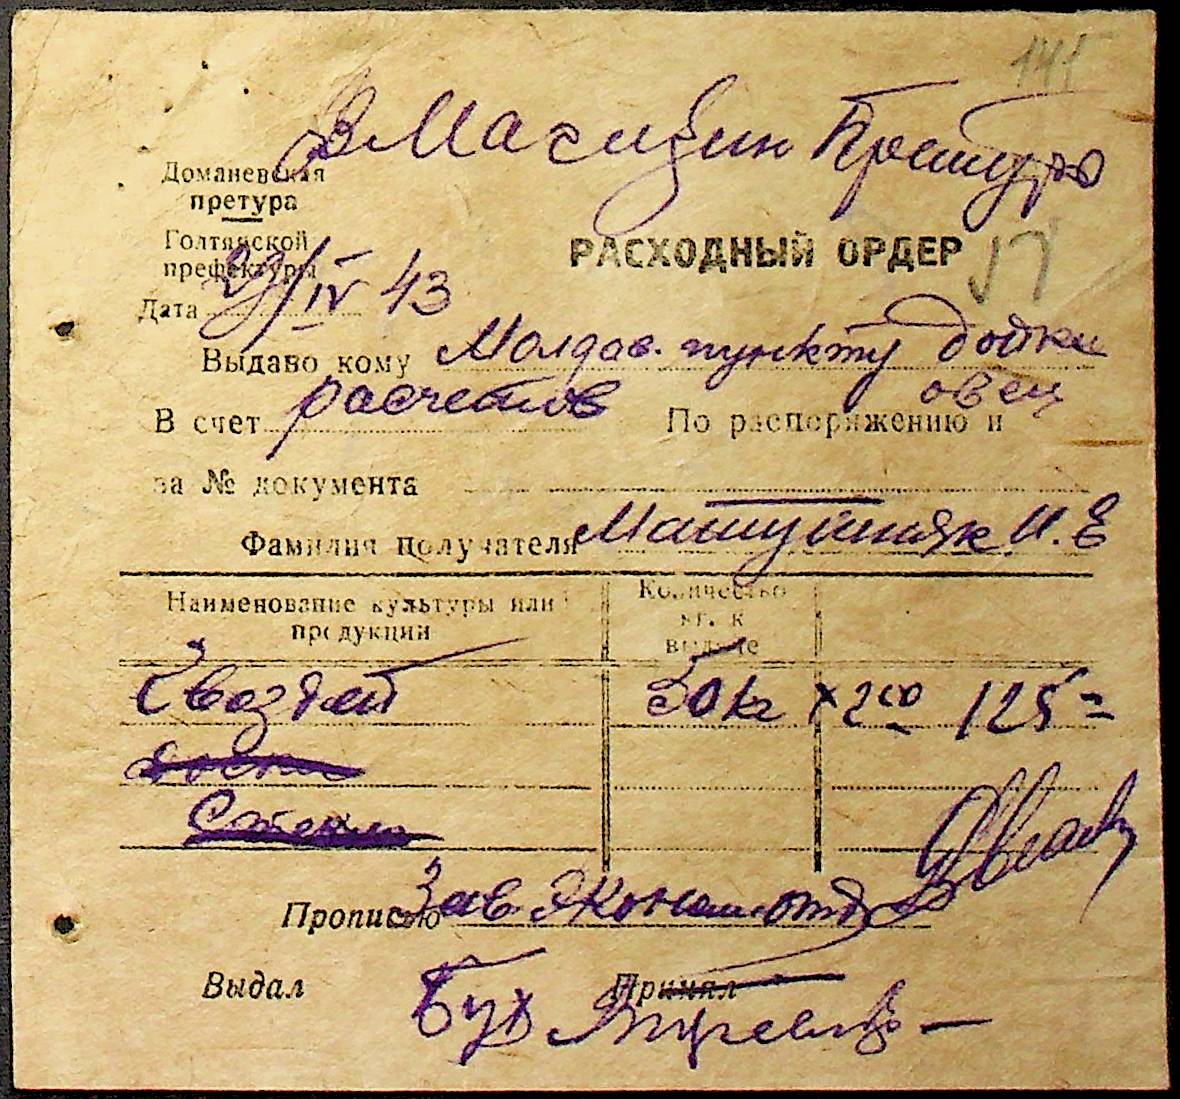 141
В Магазин Претуры
Доманевская
претура
Голтянской
префектуры
РАСХОДНЫЙ ОРДЕР
Дата 29/IV 43
Выдаво кому Молдав. пункту дойки
овец
В счет расчетов По распоряжению и
за № документа
Фамилия получателя И. Е
Наименование культуры или продукции
Количество кг. к выдаче
Гвоздей 50 кг х 2 50 125=
доски
Стекло
Прописью Зав Эконом. отд
Выдал Принял
Бух